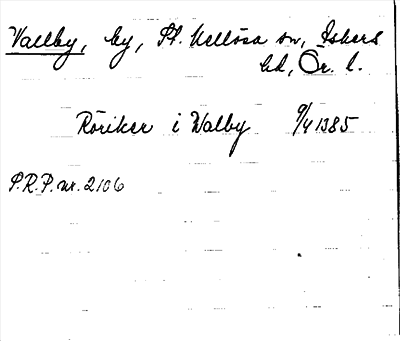 Vallby, by, St. Mellösa sn, Askers
hd, Ör. l.
Röriker i Walby 9/4 1385
S.R.P. nr. 2106